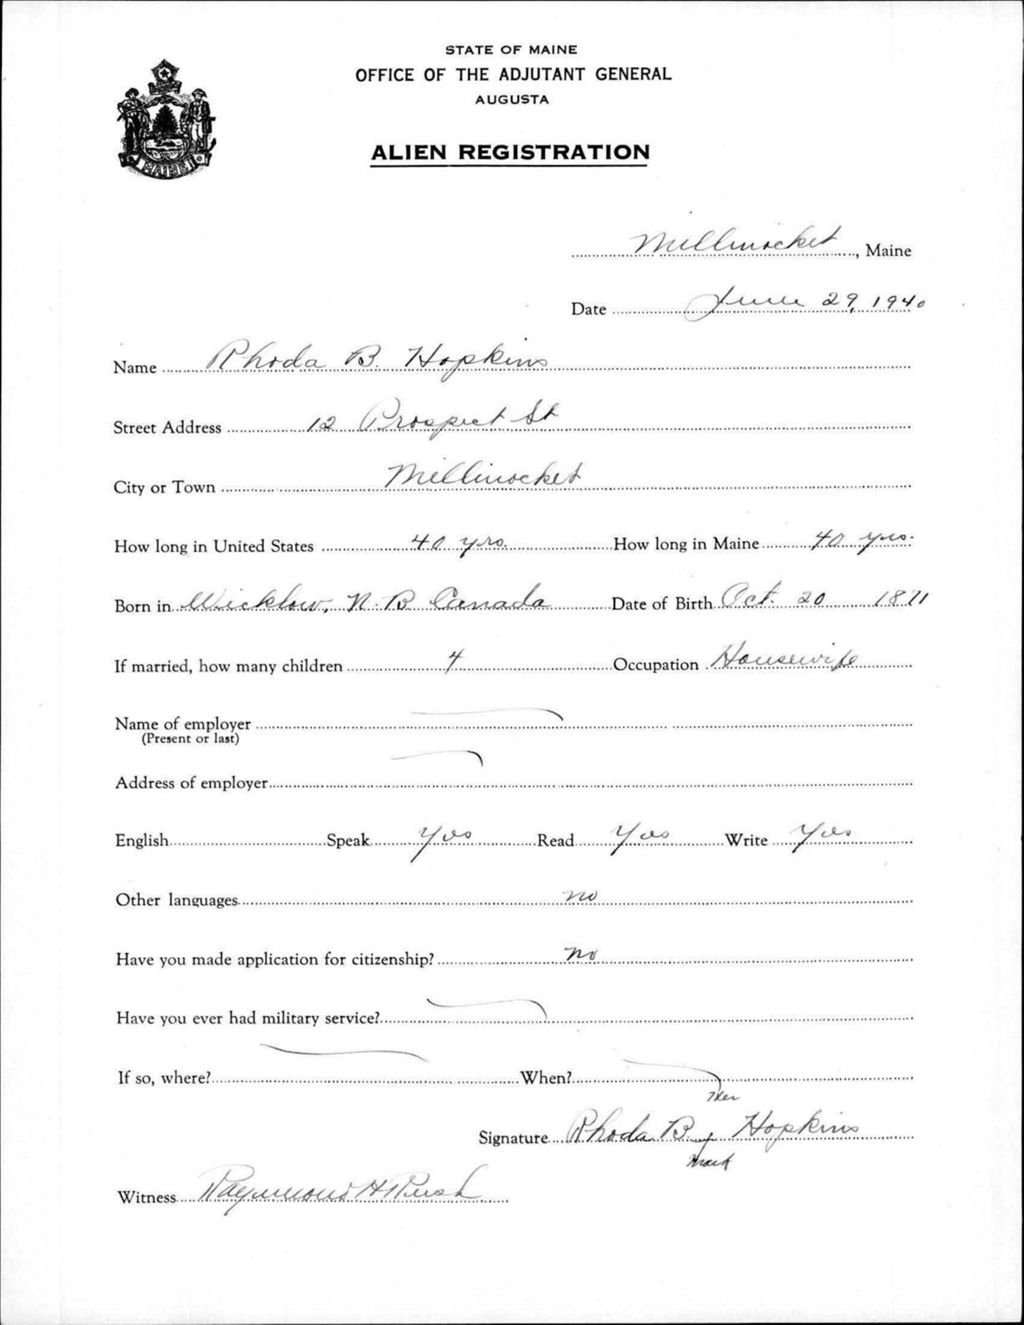 STATE OF MAINE
OFFICE OF THE ADJUTANT GENERAL
AUGUSTA
ALIEN REGISTRATION
MAINE
Millinocket, Maine
Date June 29, 1940
Name Rhoda B. Hopkins
Street Address 12 Prospect St
City or Town Millinocket
How long in United States 40 yrs. How long in Maine 40 yrs.
Born in Wicklow, N.B Canada Date of Birth Oct. 20 1871
If married, how many children 4 Occupation Housewife
Name of employer
(Present or last)
Address of employer
English Speak Yes Read Yes Write Yes
Other languages no
Have you made application for citizenship? no
Have you ever had military service?
If so, where? When?
Her
Signature Rhoda B. x Hopkins
mark
Witness Raymond H Rush